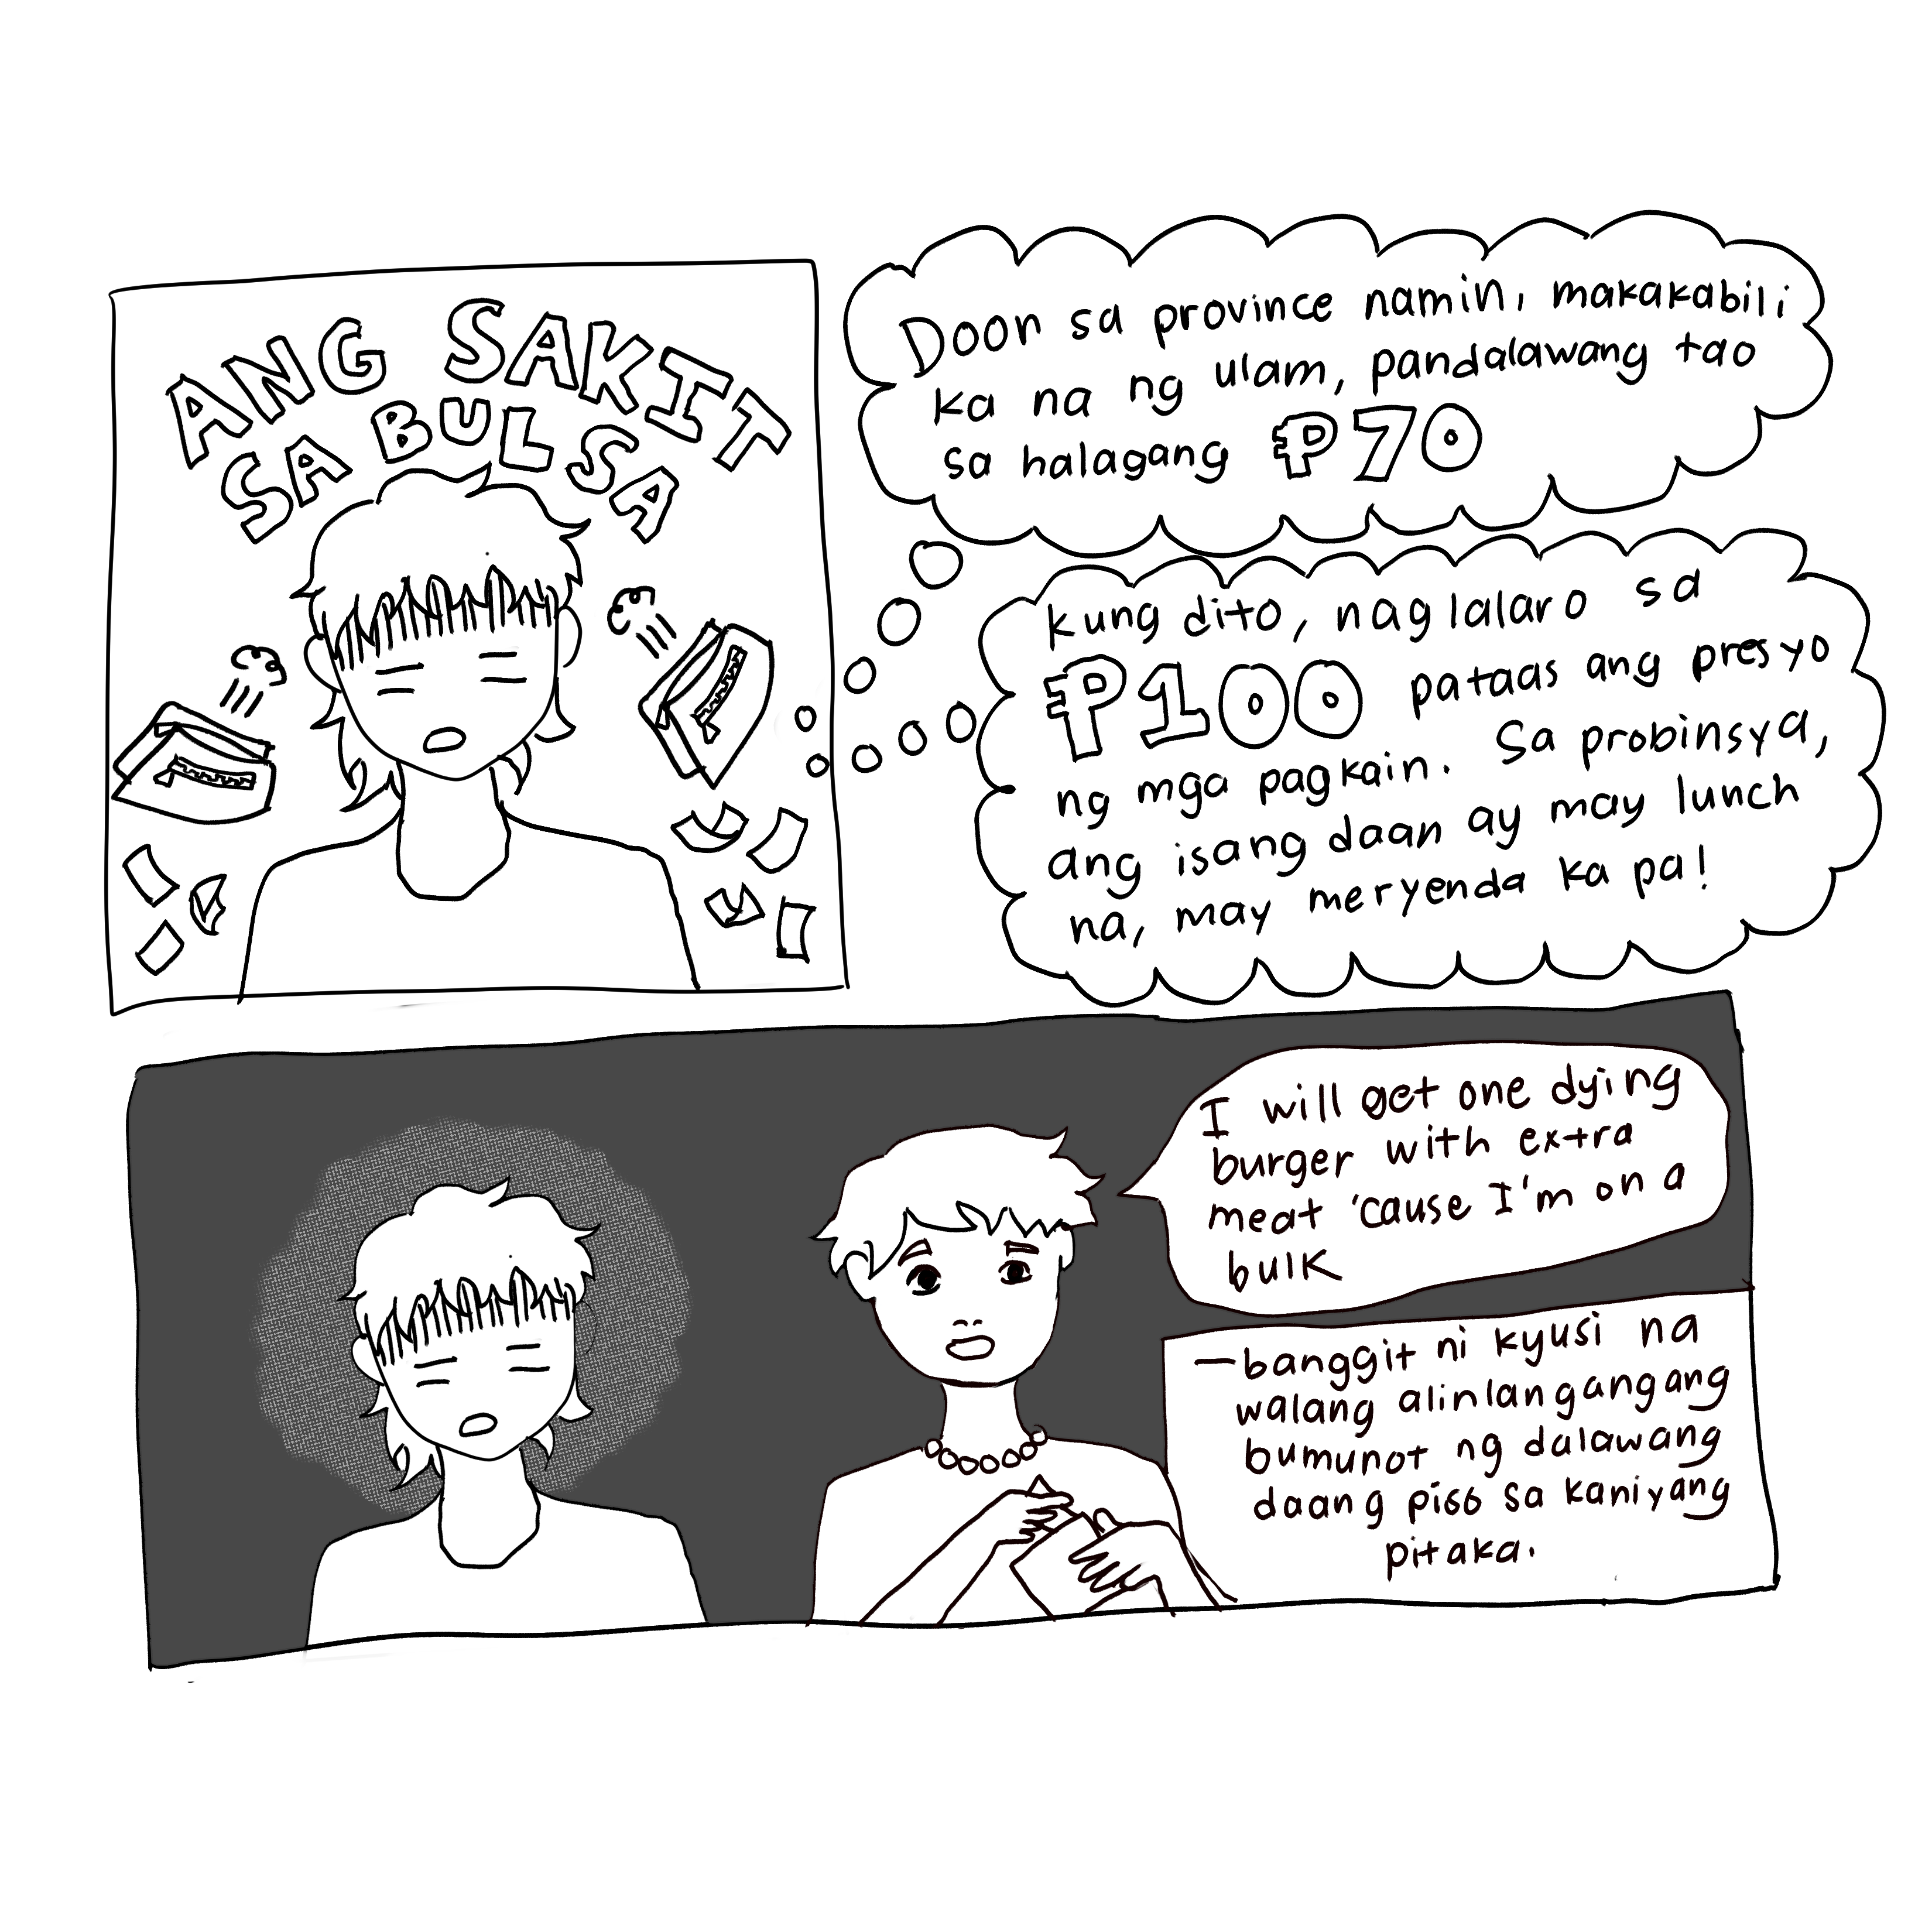 ANG SAKIT
SA BULSA
Doon sa province namin, makakabili
ka na ng ulam, pandalawang tao
sa halagang ₱70
kung dito, naglalaro sa
₱100 pataas ang presyo
ng mga pagkain. Sa probinsya,
ang isang daan ay may lunch
na, may meryenda ka pa!
I will get one dying
burger with extra
meat 'cause I'm on a
bulk
—banggit ni kyusi na
walang alinlangangang
bumunot ng dalawang
daang piso sa kaniyang
pitaka.